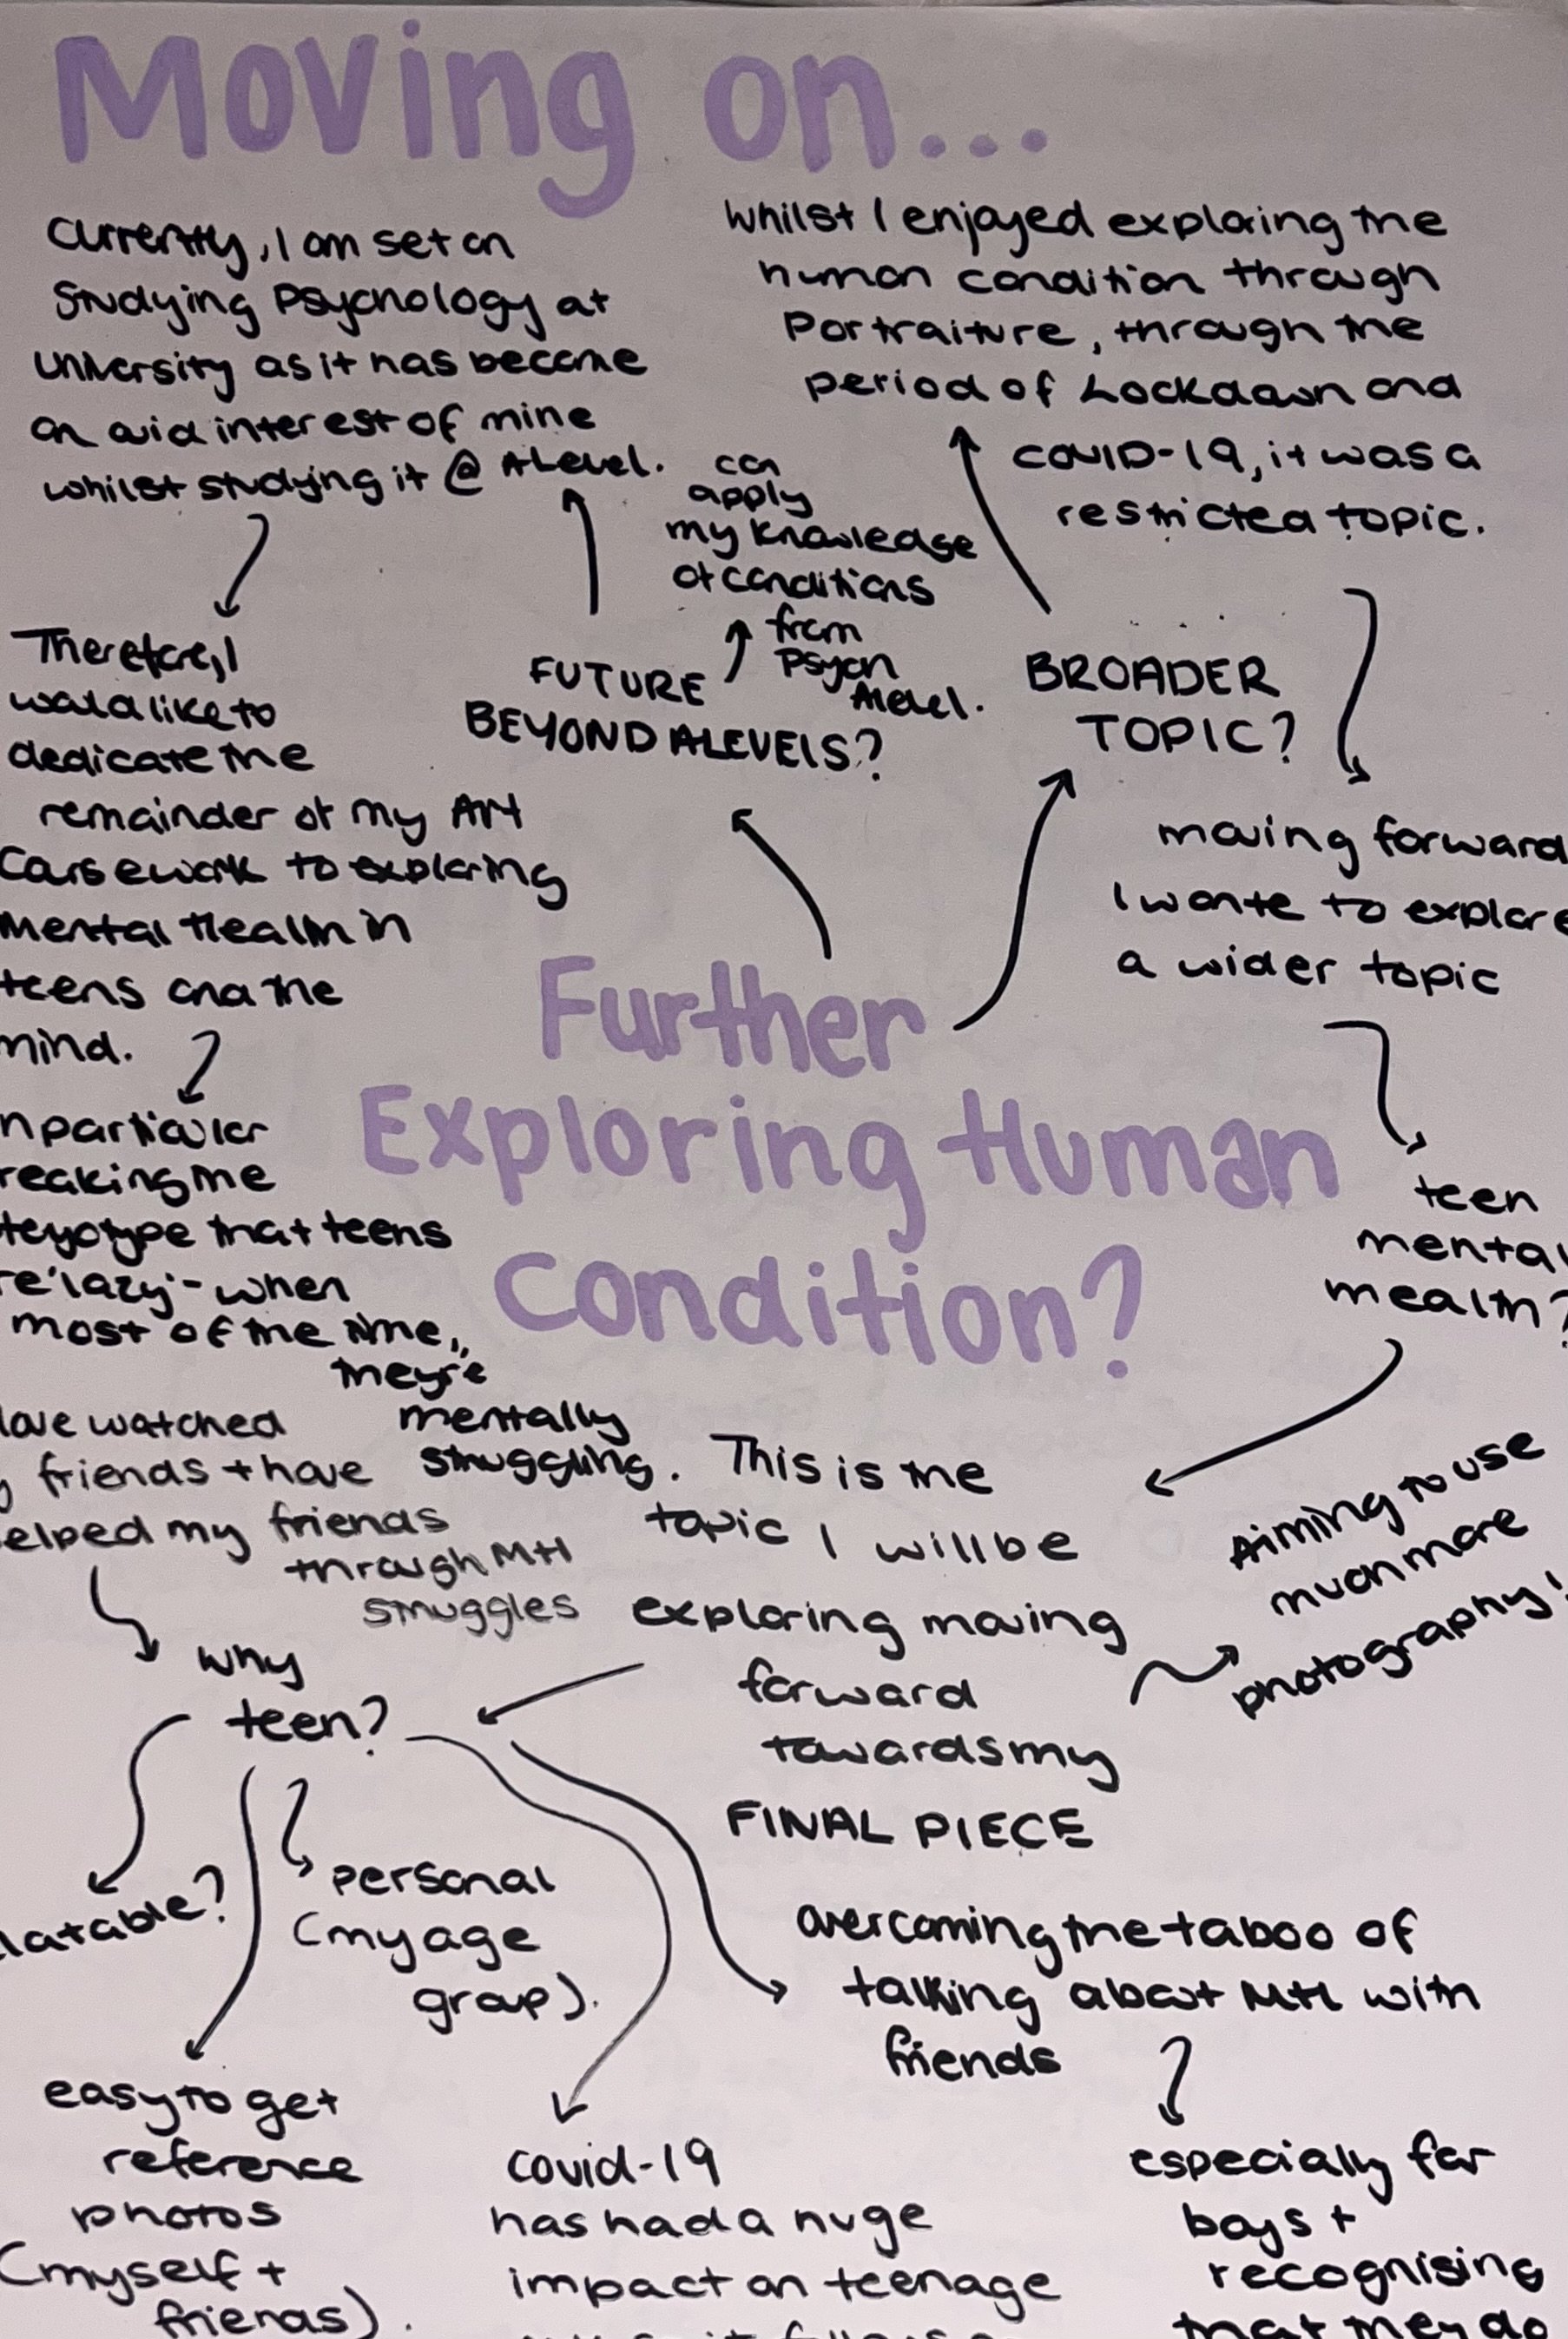 Moving on...
Currently, I am set on
studying Psychology at
University as it has become
an avid interest of mine
whilst studying it @ A Level.
Therefore, I
would like to
dedicate the
remainder of my Art
Coursework to exploring
Mental Health in
teens and the
mind.
n particular
reaking the
teyotype that teens
re 'lazy' - when
most of the time,
they're
mentally
struggling.
have watched
y friends + have
elped my friends
through MH
struggles
FUTURE
BEYOND ALEVELS?
can
apply
my knowledge
of conditions
from
Psych
Alevel.
whilst I enjoyed exploring the
human condition through
Portraiture, through the
period of Lockdown and
COVID-19, it was a
restricted topic.
BROADER
TOPIC?
moving forward
I wante to explore
a wider topic
teen
mental
mealth?
Further
Exploring Human
Condition?
This is the
topic I will be
exploring moving
forward
towards my
FINAL PIECE
Aiming to use
much more
photography!
why
teen?
latable?
personal
(my age
group).
easy to get
reference
photos
(myself +
friends).
covid-19
has had a huge
impact on teenage
overcoming the taboo of
talking about MH with
friends
especially for
boys +
recognising
that they do